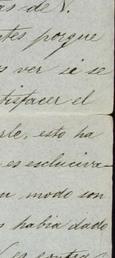 as de V.
tes porque
s ver si se
tisfacer el
rle, esto ha
es esclusiva-
modo son
s habia dado